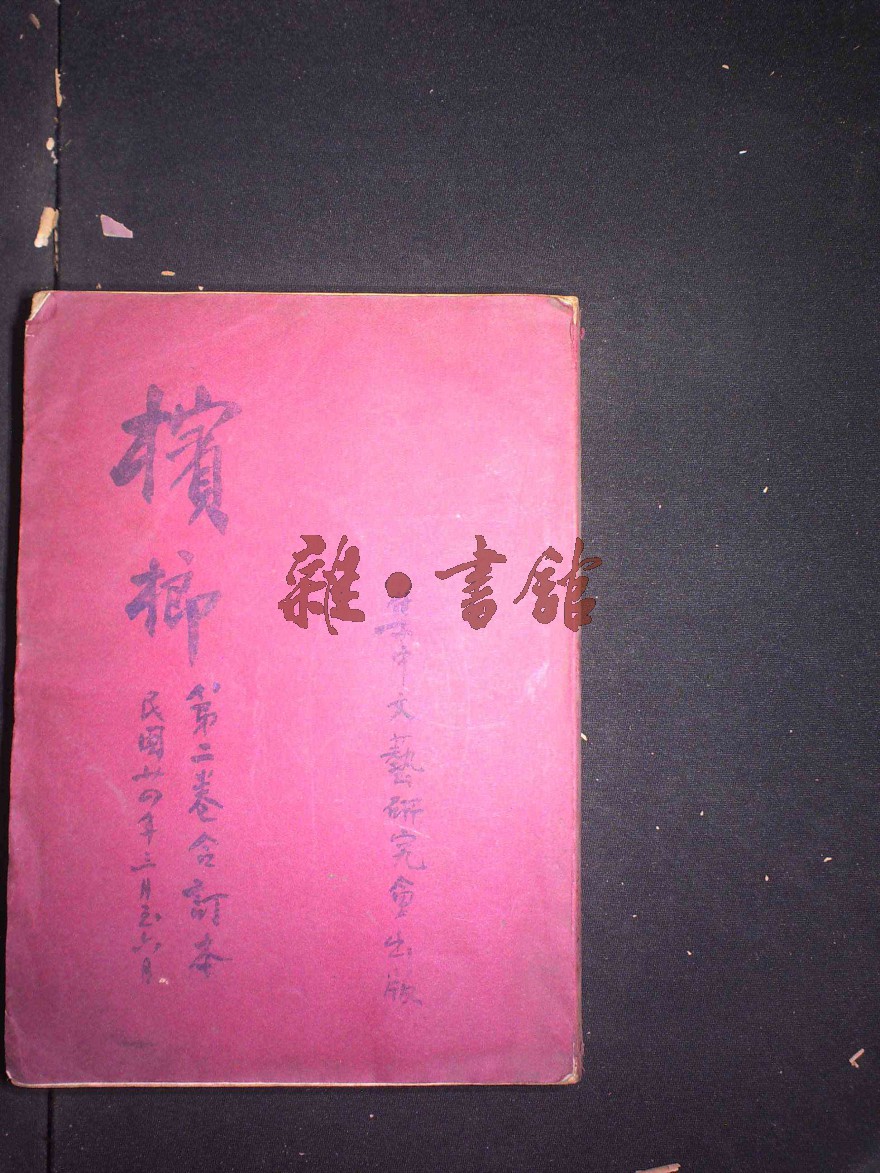 雜·書館
中文藝研究會出版
檳榔
第二卷合訂本
民國廿四年三月至六月